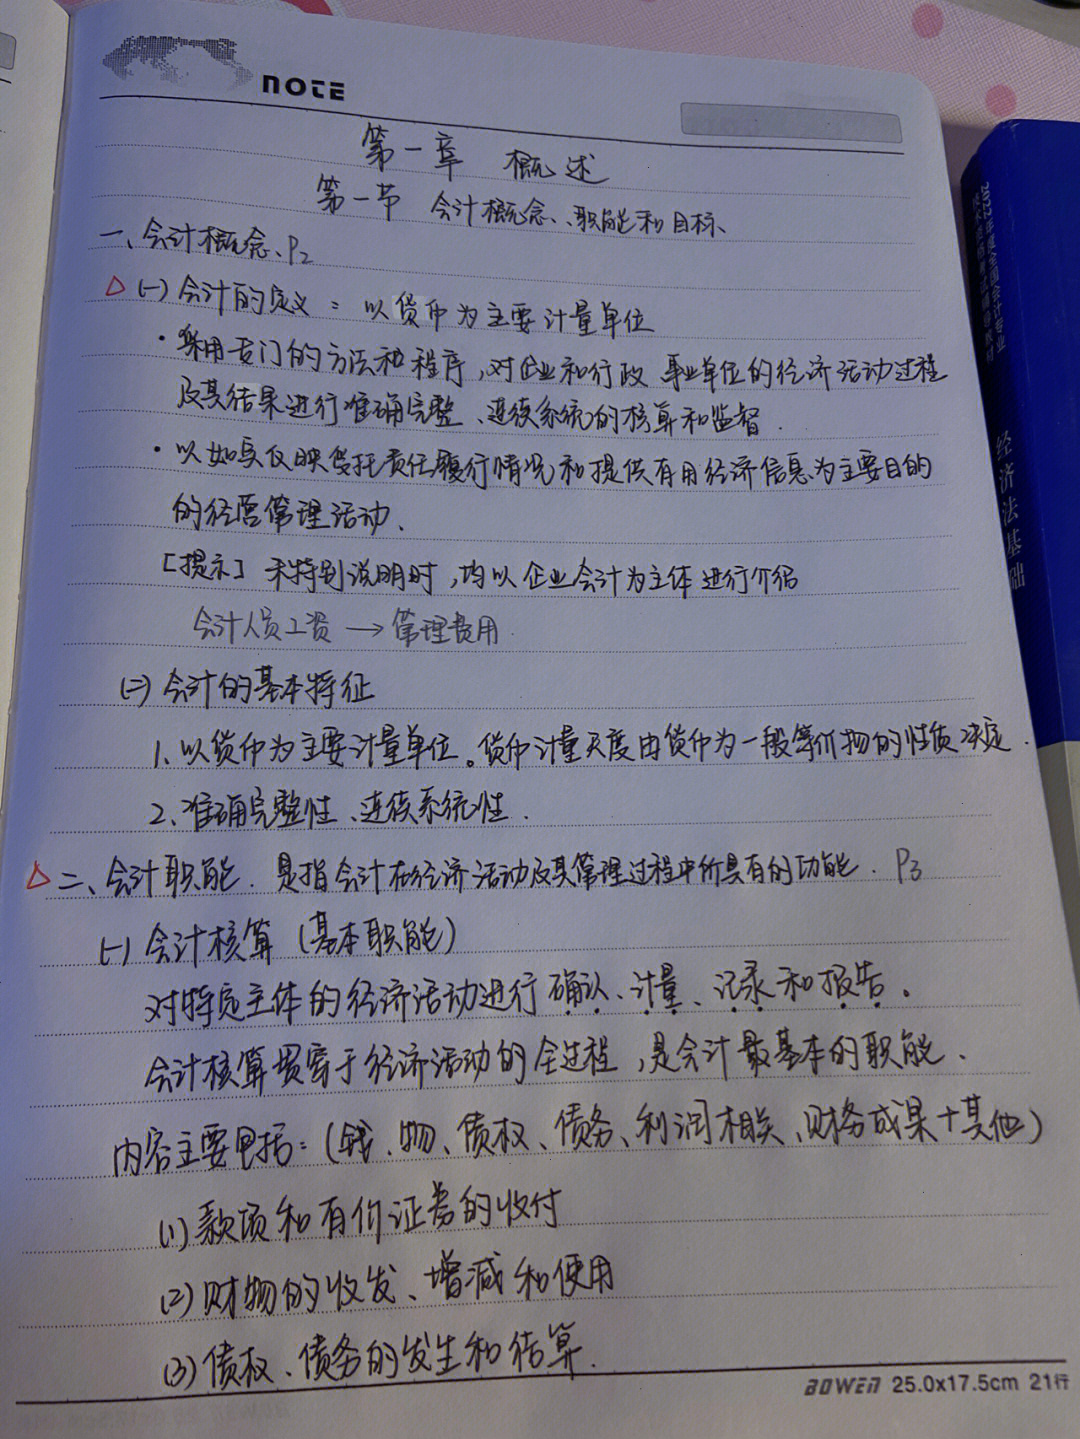 NOTE
第一章 概述
第一节 会计概念、职能和目标、
一、会计概念、P2
△(一)会计的定义：以货币为主要计量单位
·采用专门的方法和程序,对企业和行政、事业单位的经济活动过程
及其结果进行准确完整、连续系统的核算和监督.
·以如实反映受托责任履行情况和提供有用经济信息为主要目的
的经营管理活动、
[提示] 未特别说明时,均以企业会计为主体进行介绍
会计人员工资→管理费用
(二)会计的基本特征
1、以货币为主要计量单位。货币计量尺度由货币为一般等价物的性质决定.
2、准确完整性、连续系统性.
△二、会计职能.是指会计在经济活动及其管理过程中所具有的功能. P3
(一)会计核算(基本职能)
对特定主体的经济活动进行确认、计量、记录和报告。
会计核算贯穿于经济活动的全过程,是会计最基本的职能.
内容主要包括:(钱、物、债权、债务、利润相关、财务成果+其他)
(1)款项和有价证券的收付
(2)财物的收发、增减和使用
(3)债权、债务的发生和结算.
BOWEN 25.0x17.5cm 21行
2022年度全国会计专业
经济法基础